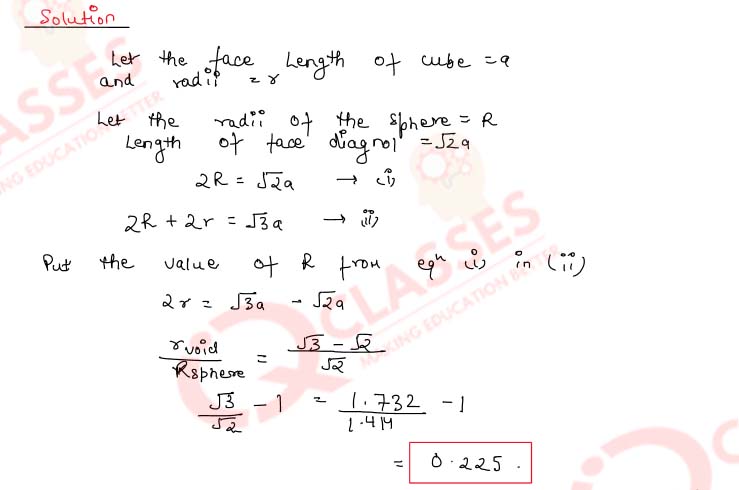 Solution
Let the face Length of cube = a
and radii = r
Let the radii of the sphere = R
Length of face diagnol = √2a
2R = √2a → (i)
2R + 2r = √3a → (ii)
Put the value of R from eqn (i) in (ii)
2r = √3a - √2a
r void / R sphere = (√3 - √2) / √2
√3/√2 - 1 = 1.732/1.414 - 1
= 0.225.
CLASSES
MAKING EDUCATION BETTER
CLASSES
MAKING EDUCATION BETTER